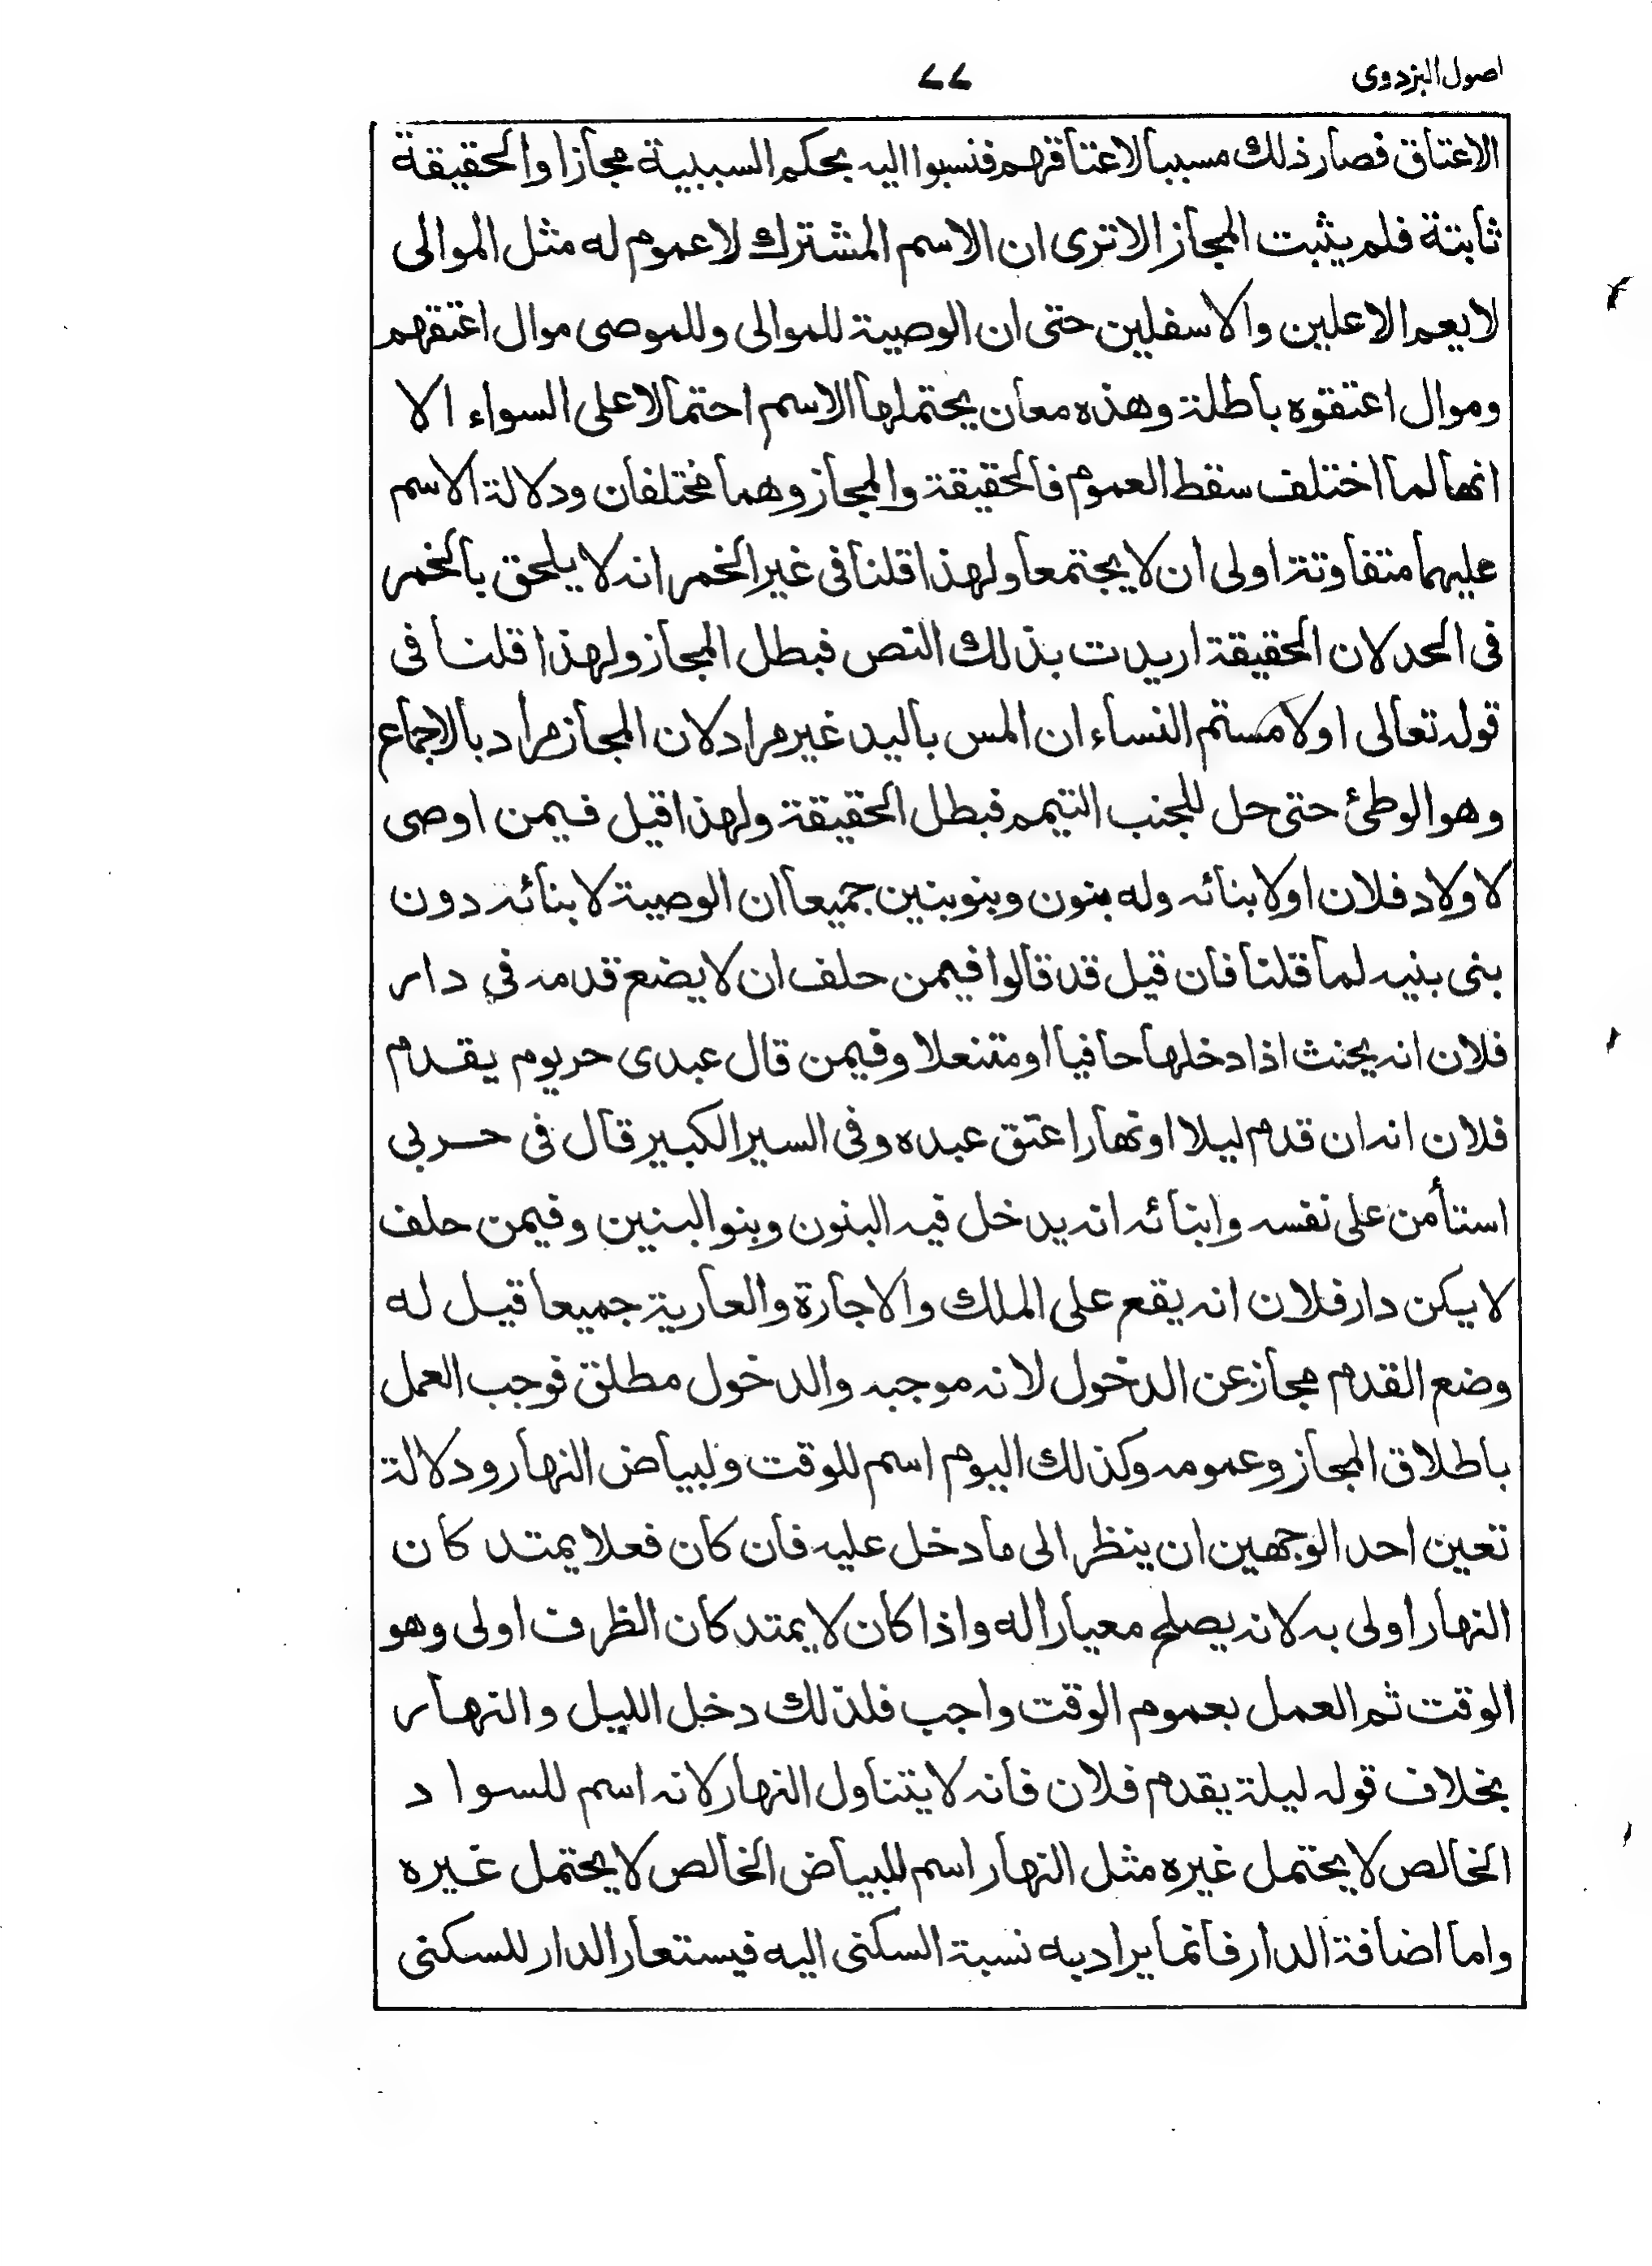 اصول البزدوی
۷۷
الاعتاق فصار ذلك مسببا لاعتاقهم فنسبوا اليه بحكم السببية مجازا والحقيقة
ثابتة فلم يثبت المجاز الا ترى ان الاسم المشترك لا عموم له مثل الموالى
لا يعم الاعلين والاسفلين حتى ان الوصية للموالى وللموصى موال اعتقهم
وموال اعتقوه باطلة وهذه معان يحتملها الاسم احتمالا على السواء الا
انها لما اختلف سقط العموم فالحقيقة والمجاز وهما مختلفان ودلالة الاسم
عليهما متفاوتة اولى ان لا يجتمعا ولهذا قلنا فى غير الخمر انه لا يلحق بالخمر
فى الحد لان الحقيقة اريدت بذلك النص فبطل المجاز ولهذا قلنا فى
قوله تعالى او لامستم النساء ان المس باليد غير مراد لان المجاز مراد بالاجماع
وهو الوطئ حتى حل للجنب التيمم فبطل الحقيقة ولهذا قيل فيمن اوصى
لاولاد فلان او لابنائه وله بنون وبنو بنين جميعا ان الوصية لابنائه دون
بنى بنيه لما قلنا فان قيل قد قالوا فيمن حلف ان لا يضع قدمه في دار
فلان انه يحنث اذا دخلها حافيا او متنعلا وفيمن قال عبدى حر يوم يقدم
فلان انه ان قدم ليلا او نهارا عتق عبده وفى السير الكبير قال فى حربي
استأمن على نفسه وابنائه انه يدخل فيه البنون وبنو البنين وفيمن حلف
لا يسكن دار فلان انه يقع على الملك والاجارة والعارية جميعا قيل له
وضع القدم مجاز عن الدخول لانه موجبه والدخول مطلق فوجب العمل
باطلاق المجاز وعمومه وكذلك اليوم اسم للوقت ولبياض النهار ودلالة
تعين احد الوجهين ان ينظر الى ما دخل عليه فان كان فعلا يمتد كان
النهار اولى به لانه يصلح معيارا له واذا كان لا يمتد كان الظرف اولى وهو
الوقت ثم العمل بعموم الوقت واجب فلذلك دخل الليل والنهار
بخلاف قوله ليلة يقدم فلان فانه لا يتناول النهار لانه اسم للسواد
الخالص لا يحتمل غيره مثل النهار اسم للبياض الخالص لا يحتمل غيره
واما اضافة الدار فانما يراد به نسبة السكنى اليه فيستعار الدار للسكنى